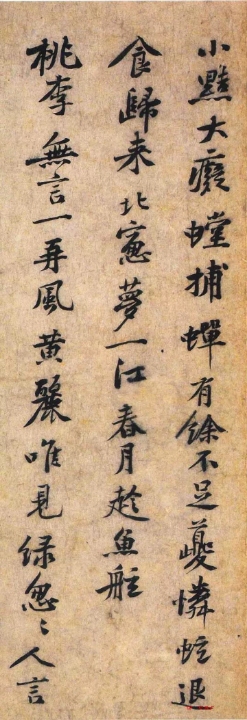 小黠大癡螳捕蟬有餘不足夔憐蚿退
食歸来北窻夢一江春月趂魚船
桃李無言一再風黄鸝唯見緑怱〻人言